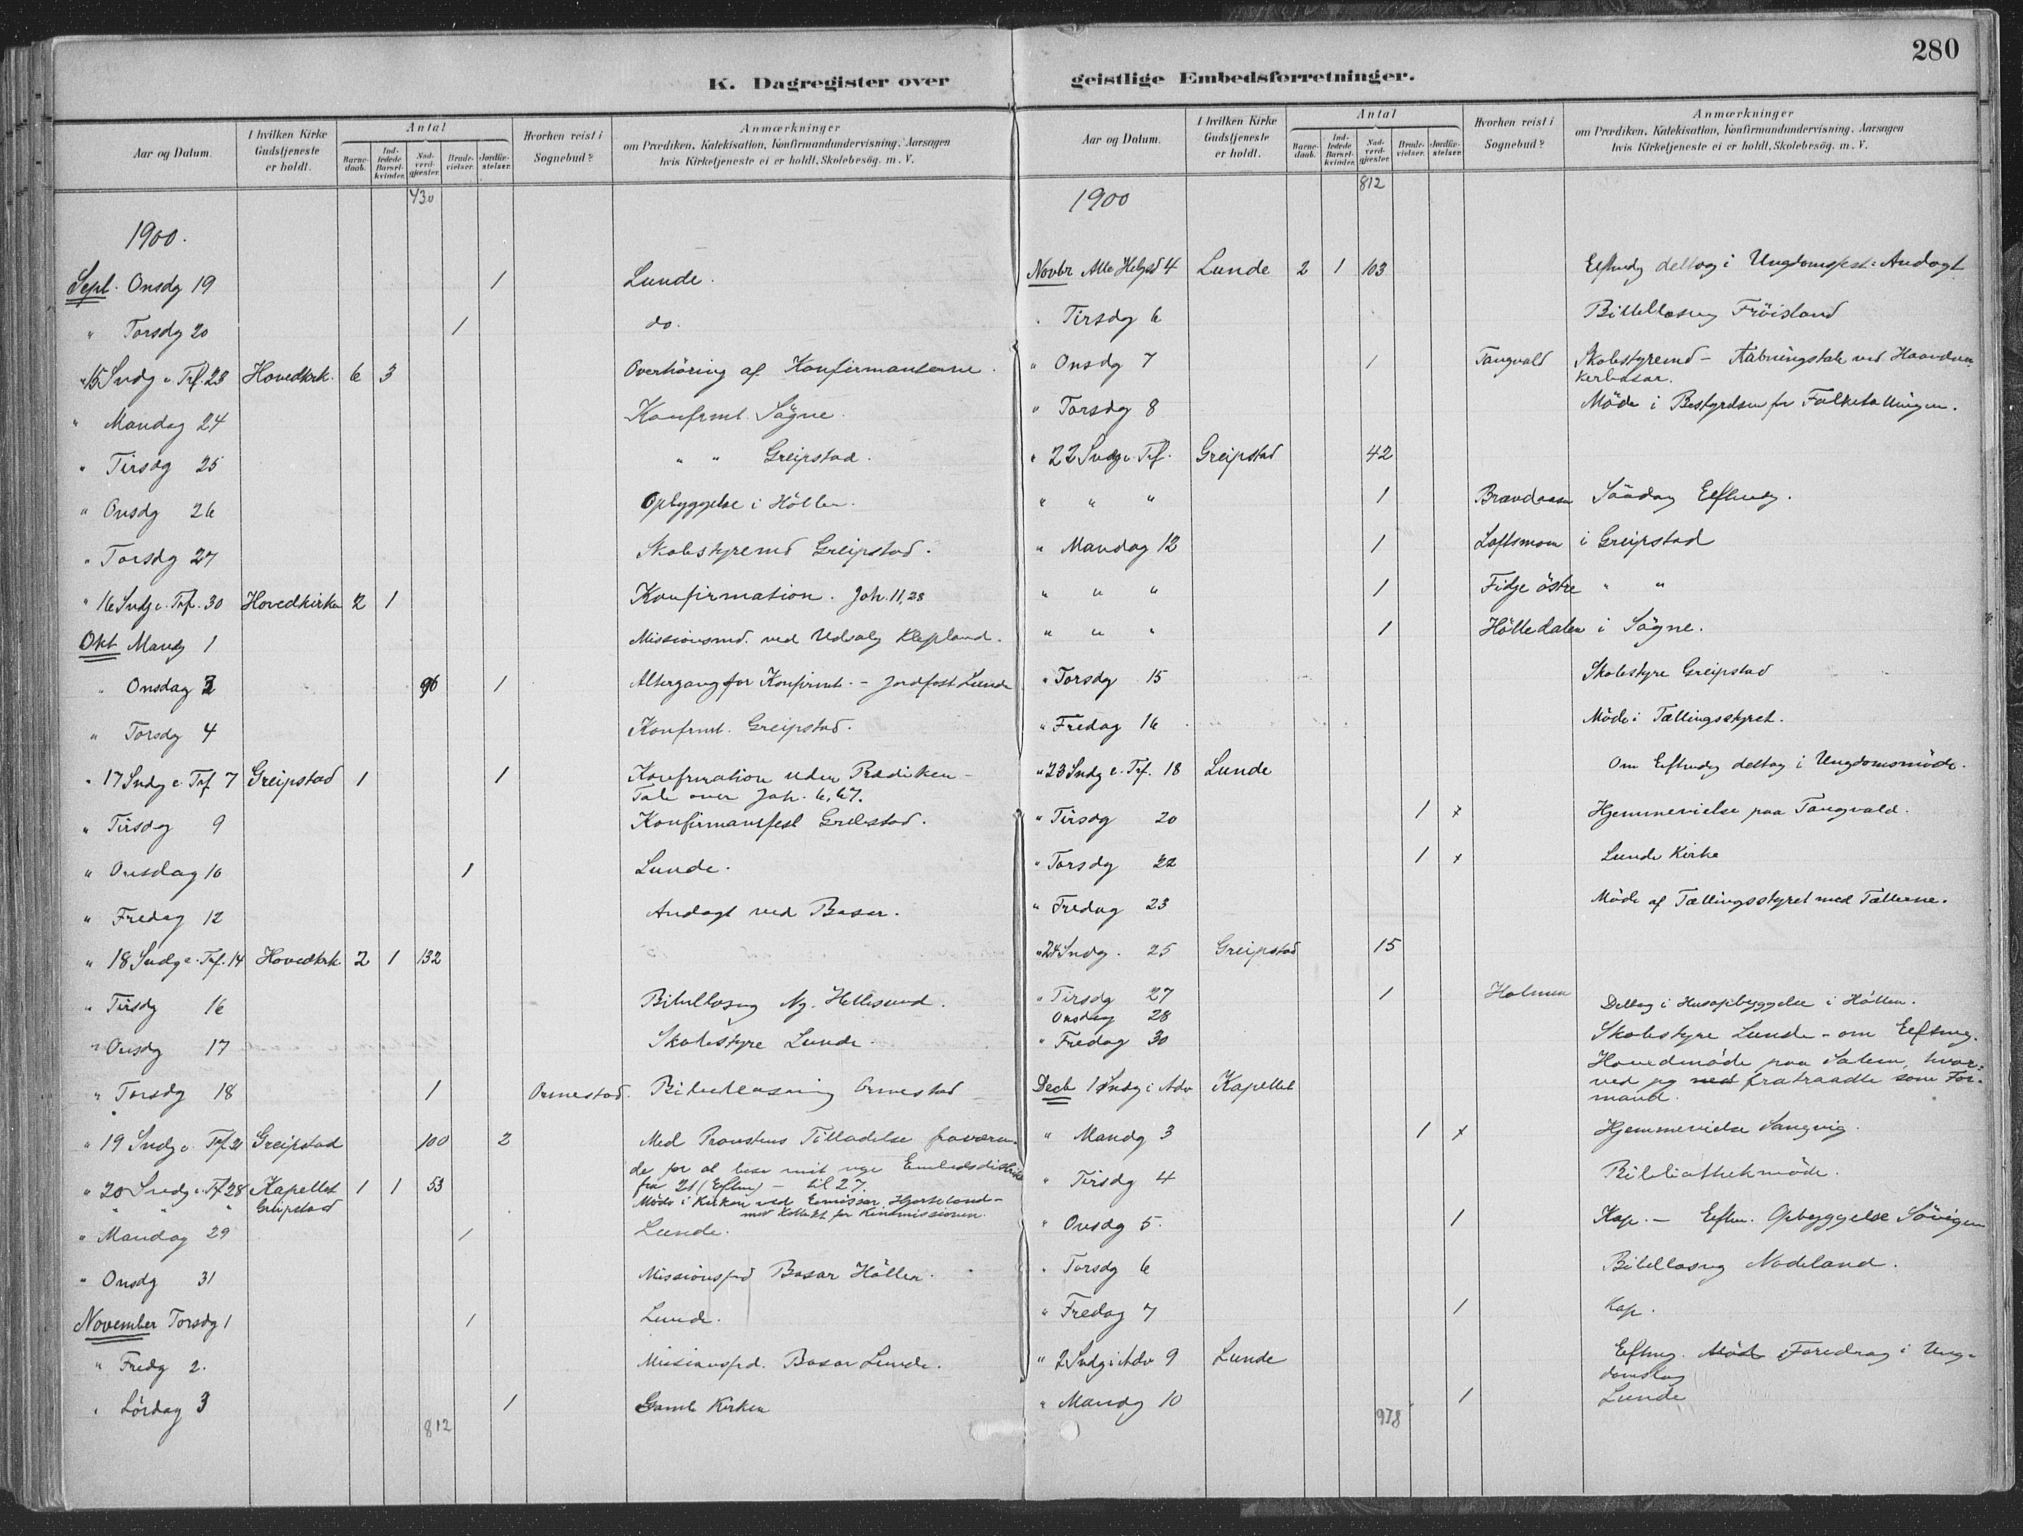 280
K. Dagregister over geistlige Embedsforretninger.
Aar og Datum.
I hvilken Kirke Gudstjeneste er holdt.
Antal
Barnedaab.
Indledede Barselkvinder.
Nadverdgjæster.
Brudevielser.
Jordfæstelser.
Hvorhen reist i Sognebud?
Anmærkninger
om Prædiken, Katekisation, Konfirmandundervisning, Aarsagen
hvis Kirketjeneste ei er holdt, Skolebesøg. m. V.
430
1900.
Sept. Onsdg 19 1 Lunde.
" Torsdg 20 1 do.
" 15 Sndg e. Trf. 23 Hovedkrk. 6 3 Overhöring af Konfirmanterne.
" Mandag 24 Konfrmt. Sögne.
" Tirsdg 25 " " Greipstad.
" Onsdg 26 Opbyggelse i Höllen.
" Torsdg 27 Skolestyremd Greipstad.
" 16 Sndg e. Trf. 30 Hovedkirken 12 1 Konfirmation. Joh. 11,28
Okt Mandg 1 Missionsmd. ved Udsalg Klepland.
" Onsdag 3 96 1 Altergang for Konfirmt. - Jordfæst. Lunde
" Torsdg 4 Konfrmt. Greipstad.
" 17 Sndg e. Trf 7 Greipstad 1 1 Konfirmation uden Prædiken -
Tale over Joh. 6,67.
" Tirsdag 9 Konfirmantfest Greipstad.
" Onsdag 10 1 Lunde.
" Fredag 12 Andagt ved Basar.
" 18 Sndg e. Trf. 14 Hovedkrk. 2 1 132
" Tirsdg 16 Bibellæsng Ny Hellesund.
" Onsdg 17 Skolestyre Lunde.
" Torsdg 18 1 Ormestad. Bibellæsning Ormestad
" 19 Sndg e. Trf. 21 Greipstad 100 2 Med Provstens Tilladelse fraværen-
de for at bese mit nye Embedsdistrikt
fra 21/ (Eftm) - til 27.
" 20 Sndg e. Trf 28 Kapellet 1 1 53 Möde i Kirken ved Hjorteland -
" " " Greipstad med Kollekt for Kinamissionen.
" Mandag 29 1 Lunde.
" Onsdg 31 Missionsfrd Basar Höllen.
November Torsdg 1 1 Lunde.
" Fredg 2. Missionsfrd. Basar Lunde.
" Lördag 3 1 Gamle Kirken
812
Aar og Datum.
I hvilken Kirke Gudstjeneste er holdt.
Antal
Barnedaab.
Indledede Barselkvinder.
Nadverdgjæster.
Brudevielser.
Jordfæstelser.
Hvorhen reist i Sognebud?
Anmærkninger
om Prædiken, Katekisation, Konfirmandundervisning, Aarsagen
hvis Kirketjeneste ei er holdt, Skolebesøg. m. V.
812
1900
Novbr Alle Helgsd 4 Lunde 2 1 103 Eftmdg deltog i Ungdomsfest: Andagt
" Tirsdg 6 Bibellæsng Fröisland
" Onsdg 7 1 Tangvald Skolestyremd - Aabningstale ved Haandver-
kerbasar.
" Torsdg 8 Möde i Bestyrelsen for Folketællingen.
" 22 Sndg e. Trf. Greipstad 42
" " " 1 Brændaasen Söndag Eftmdg.
" Mandag 12 1 Loftsmoen i Greipstad
" " " 1 Fidje östre " "
" " " 1 Hölledalen i Sögne.
" Torsdg 15 Skolestyre Greipstad
" Fredag 16 Möde i Tællingsstyret.
" 23 Sndg e. Trf. 18 Lunde Om Eftmdg deltog i Ungdomsmöde.
" Tirsdg 20 1 x Hjemmevielse paa Tangvald.
" Torsdg 22 1 x Lunde Kirke
" Fredag 23 Möde af Tællingsstyret med Tællerne.
" 24 Sndg. 25 Greipstad 15
" Tirsdg 27 1 Holmen Deltog i Husopbyggelse i Höllen.
Onsdag 28 Skolestyre Lunde - om Eftmg.
" Fredag 30 Hovedmöde paa Salem, hvor-
ved jeg fratraadte som For-
mand.
Decb 1 Sndg i Adv Kapellet
" Mandg 3 1 x Hjemmevielse Langvig.
" Tirsdg 4 Bibliothekmöde.
" Onsdg 5. 1 Kap. - Eftm. Opbyggelse Sövigen
" Torsdg 6 Bibellæsng Nodeland.
" Fredag 7 1 Kap.
" 2 Sndg i Adv 9 Lunde Eftmg. Foredrag i Ung-
domslag
" Mandg 10 1 Lunde
978